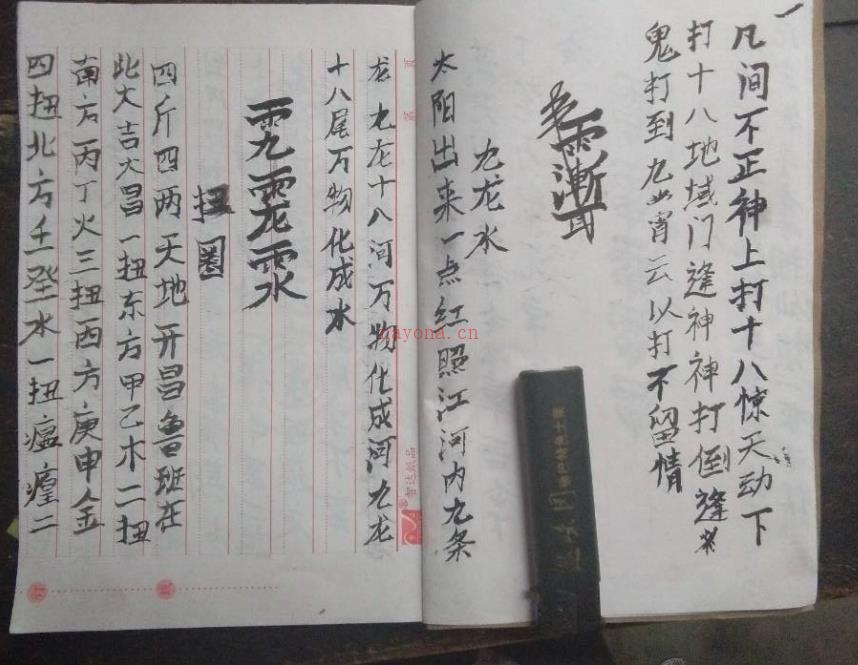 一
凡间不正神上打十八惊天动下
打十八地域门逢神神打倒逢
鬼打到九霄云以打不留情
九龙水
太阳出来一点红照江河内九条
龙九龙十八河万物化成河九龙
十八尾万物化成水
扭圈
四斤四两天地开昌鲁班在
北大吉大昌一扭东方甲乙木二扭
南方丙丁火三扭西方庚申金
四扭北方壬癸水一扭瘟㾮二
智达纸品
nayona.cn